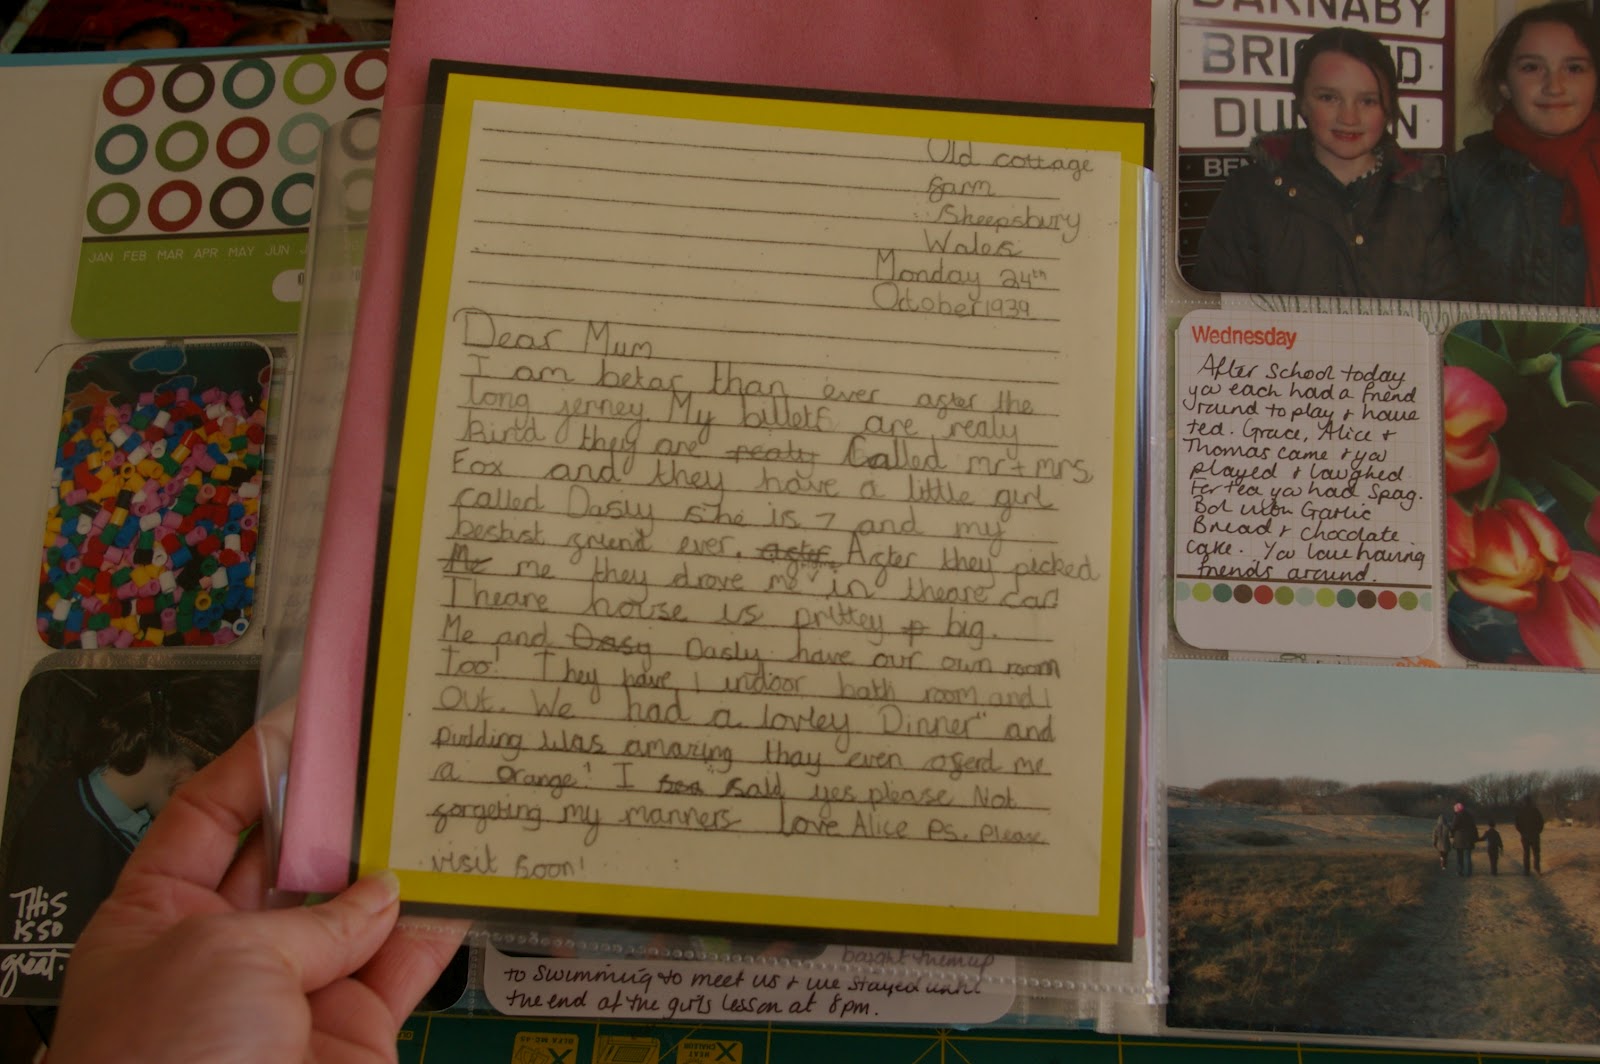 Old cottage
farm
Sheepsbury
Wales
Monday 24th
October 1939
Dear Mum
I am betar than ever after the
long jerney. My billets are realy
kind they are realy Called mr + mrs,
Fox and they have a little girl
called Dasiy she is 7 and my
bestist griend ever. after After they picked
Me me they drove me in theare car
Theare house is prittey big.
Me and Dasy Dasiy have our own room
Too! They have 1 indoor bath room and 1
Out. We had a lovley Dinner" and
pudding was amazing thay even offerd me
a orange! I said yes please Not
forgeting my manners love Alice Ps. please
visit soon!
JAN FEB MAR APR MAY JUN
THIS
IS SO
great.
BARNABY
BRI D
DU N
BEN
Wednesday
After School today
you each had a friend
round to play & have
tea. Grace, Alice &
Thomas came & you
played & laughed
For tea you had Spag.
Bol with Garlic
Bread & chocolate
cake. You love having
friends around.
to swimming to meet us & we stayed until
the end of the girls lesson at 8pm.